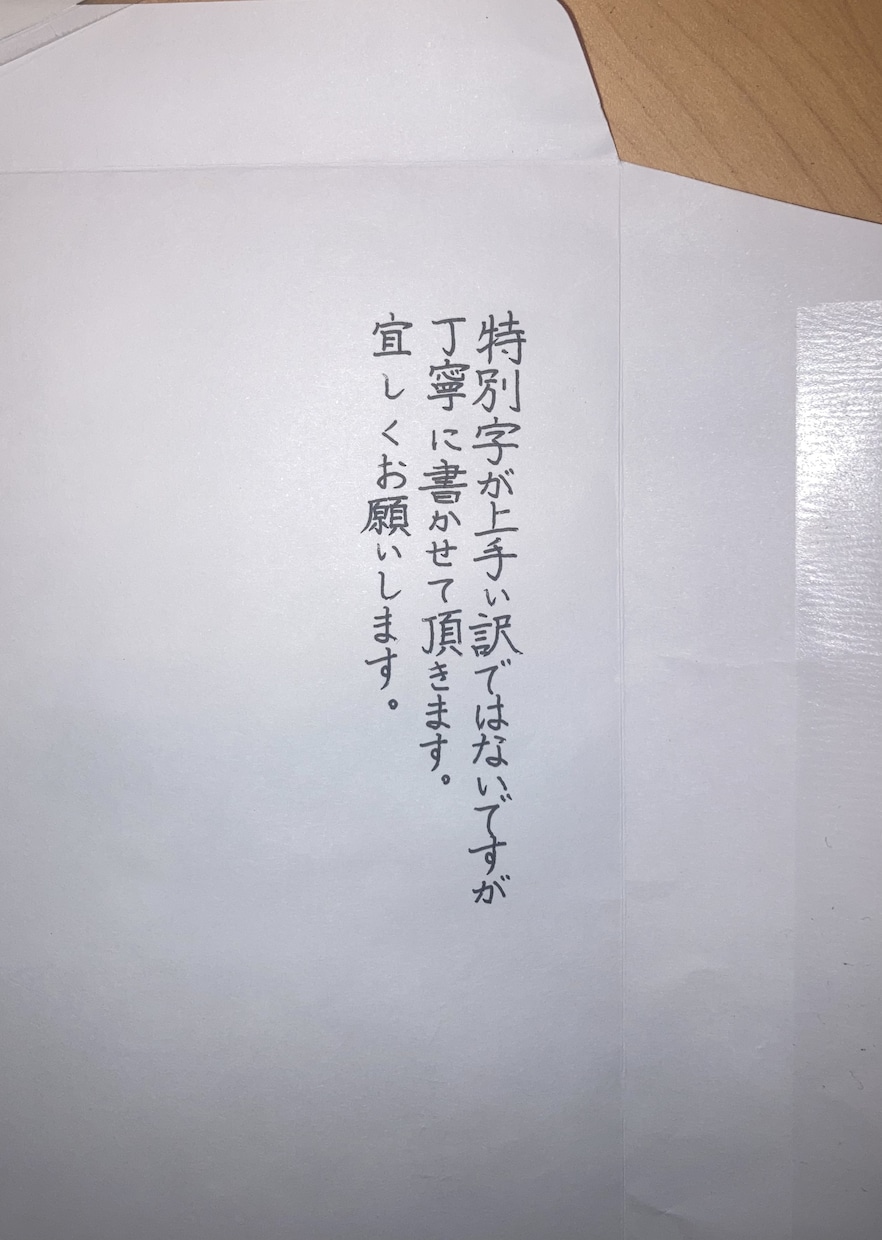 特別字が上手い訳ではないですが
丁寧に書かせて頂きます。
宜しくお願いします。